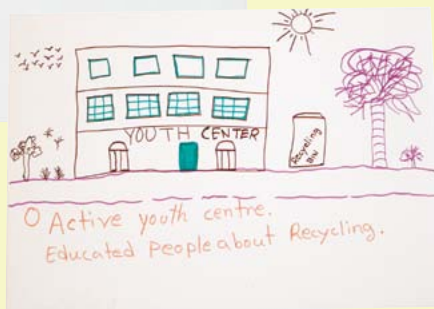 YOUTH CENTER
Recycling
Bin
O Active youth centre.
Educated people about Recycling.